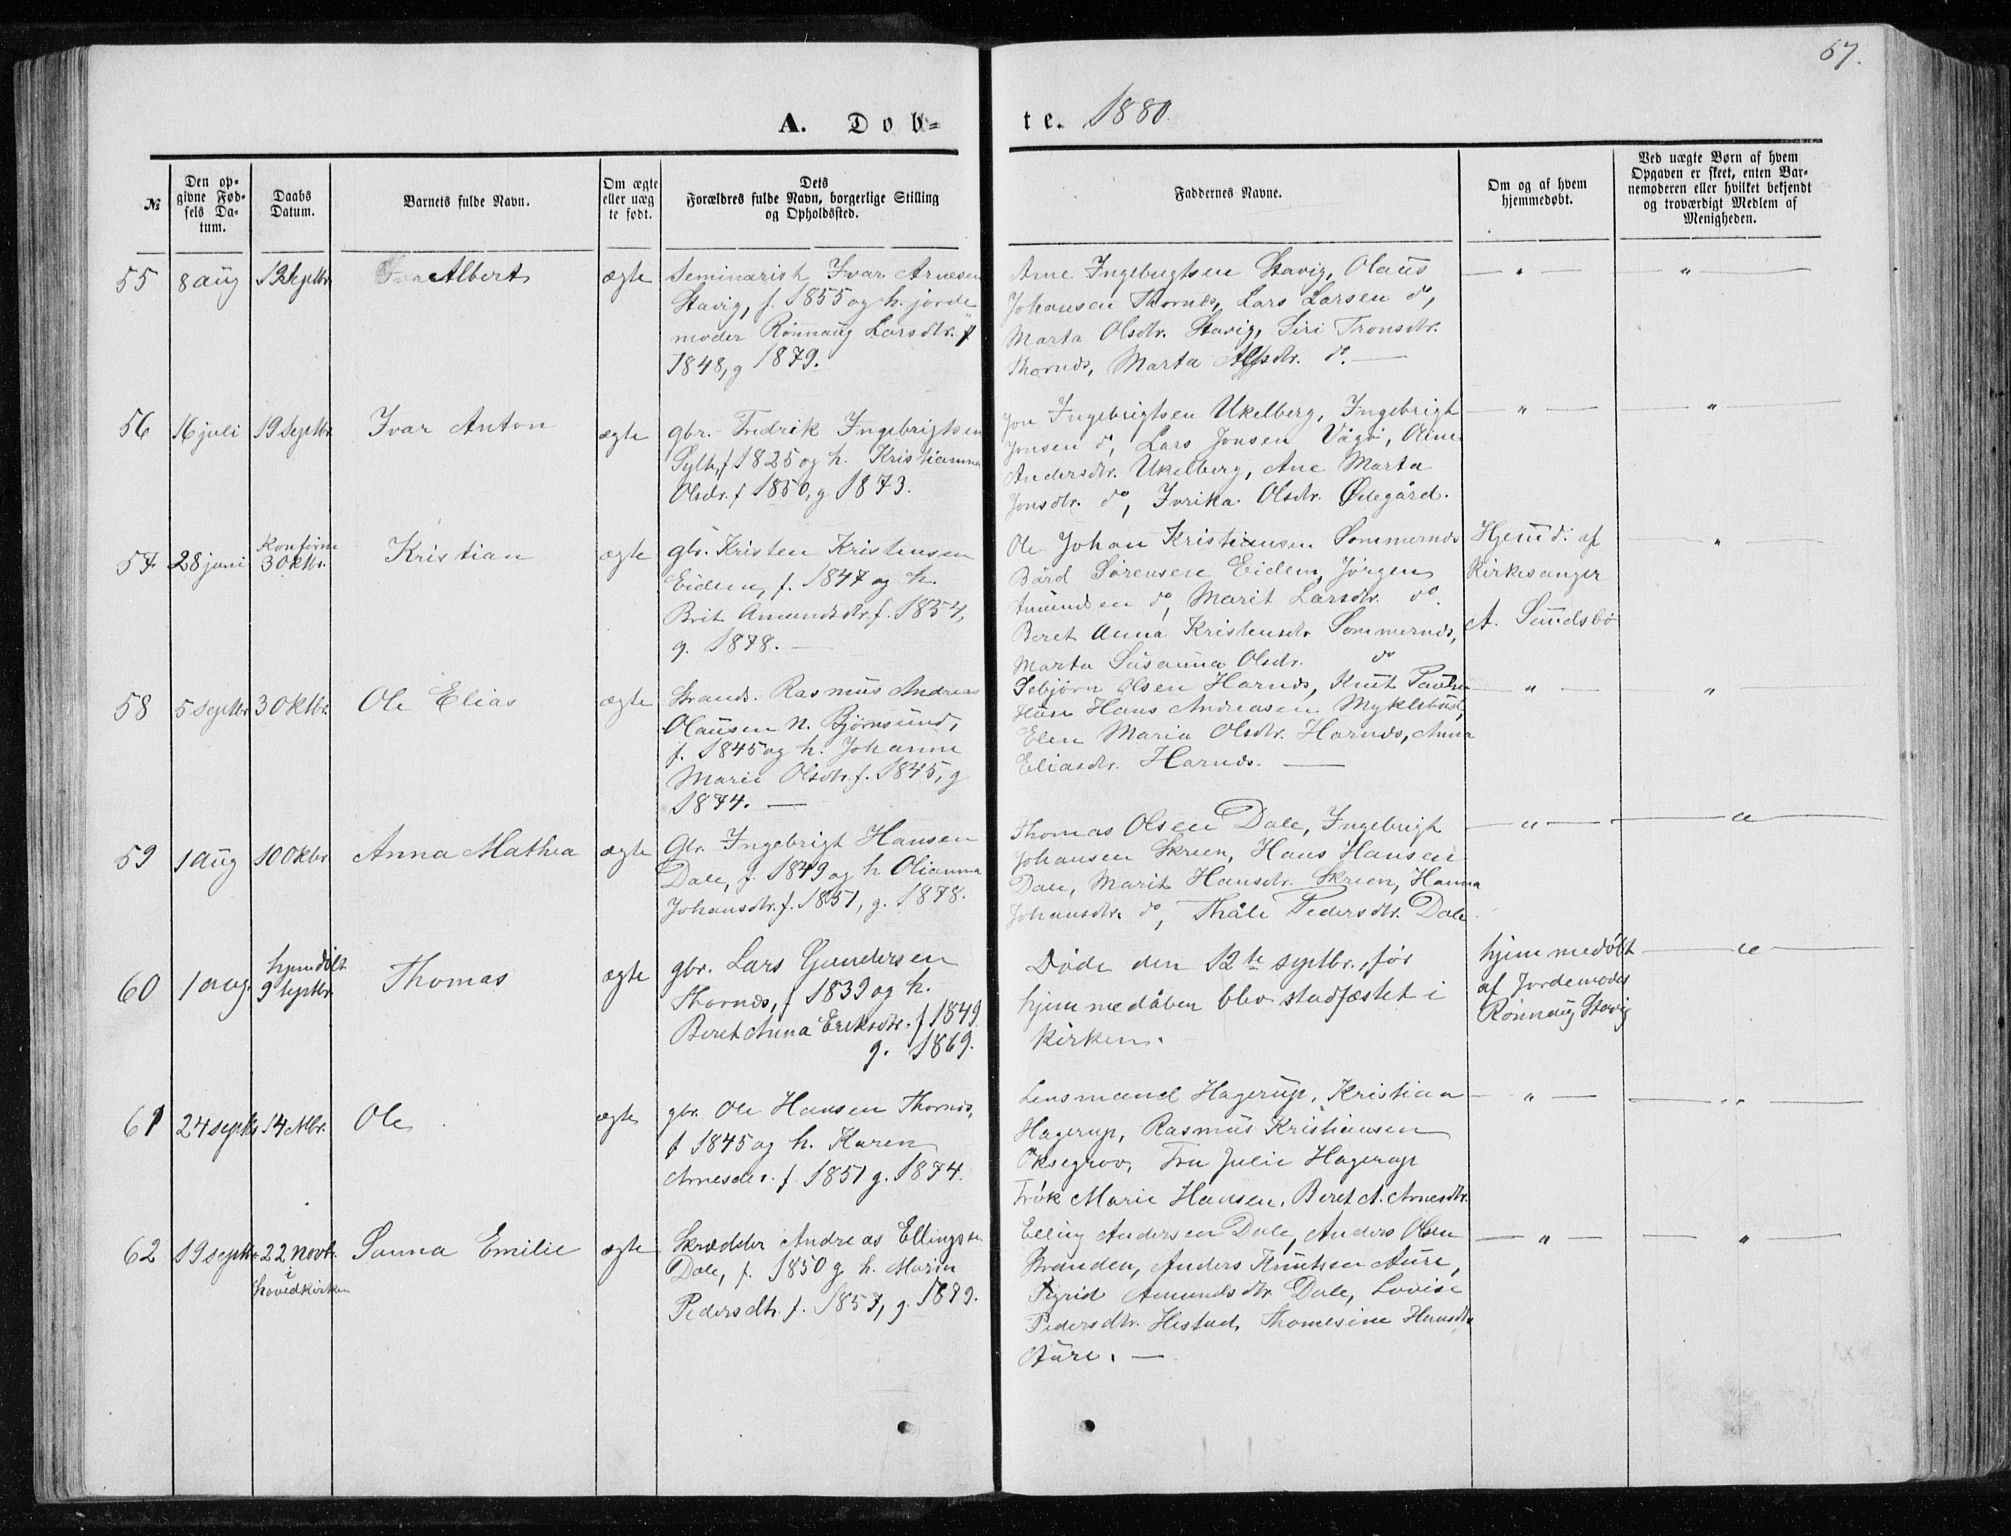 57.
A. Døb-
te. 1880.
№
Den op-
givne Fød-
sels Da-
tum.
Daabs
Datum.
Barnets fulde Navn.
Om ægte
eller uæg
te født.
Dets
Forældres fulde Navn, borgerlige Stilling
og Opholdssted.
Faddernes Navne.
Om og af hvem
hjemmedøbt.
Ved uægte Børn af hvem
Opgaven er skeet, enten Bar-
nemoderen eller hvilket bekjendt
og troværdigt Medlem af
Menigheden.
55
8 aug
Septbr.
Albert
ægte
Seminarist Ivar Arnesen
Stavig, f. 1855 og h. jorde
moder Rönnaug Larsdtr. f
1848, g 1879.
Arne Ingebrigtsen Stavig, Olaus
Johansen Thornæs, Lars Larsen do,
Marta Olsdtr. Stavig, Siri Tronsdtr.
Thornæs, Marta Alfsdtr. do. —
— " —
— " —
56
16 juli
19 Septbr.
Ivar Anton
ægte
gbr. Fredrik Ingebrigtsen
Sylte, f 1825 og h. Kristianna
Olsdr. f 1850, g. 1873.
Jon Ingebrigtsen Ukelberg, Ingebrigt
Jonsen do, Lars Jonsen Vågö,
Andersdtr. Ukelberg, Ane Marta
Jonsdtr. do, Ivrika Olsdtr. Ødegård.
— " —
— " —
57
28 juni
3 Oktbr.
Kristian
ægte
gbr. Kristen Kristensen
Eidem, f. 1847 og h.
Brit Amundsdtr. f. 1854,
g. 1878. —
Ole Johan Kristiansen Sommernæs
Bård Sørensen Eidem, Jörgen
Amundsen do, Marit Larsdtr. do
Beret Anna Kristensdtr. Sommernæs,
Marta Susanna Olsdtr. do
Hjemd. af
Kirkesanger
A. Sandsbø
— " —
58
5 Septbr
3 Oktbr.
Ole Elias
ægte
Strands. Rasmus Andreas
Olausen N. Bjørnsund,
f. 1845 og h. Johanne
Marie Olsdtr. f. 1845, g
1874. —
Sebjørn Olsen Harnæs, Knut Paulsen
Huse Hans Andreasen Myklebust,
Elen Maria Olsdtr. Harnæs, Anna
Eliasdtr. Harnæs. —
— " —
— " —
59
1 aug
10 Oktbr.
Anna Mathea
ægte
Gbr. Ingebrigt Hansen
Dale, f. 1849 og h. Olianna
Johansdtr. f. 1851, g. 1878.
Thomas Olsen Dale, Ingebrigt
Johansen Skreen, Hans Hansen
Dale, Marit Hansdtr. Skreen, Hanna
Johansdtr. do, Thåle Pedersdtr. Dale.
— " —
— " —
60
1 aug.
hjemdöbt
9 Septbr.
Thomas
ægte
gbr. Lars Gundersen
Thornæs, f 1839 og h.
Beret Anna Eriksdtr. f 1849
g. 1869.
Døde den 12te Septbr., før
hjemmedåben blev stadfæstet i
Kirken.
hjemmedöbt
af Jordemoder
Rönnaug Stavig
— " —
61
24 septbr
14 Nbr.
Ole
ægte
gbr. Ole Hansen Thornæs,
f 1845 og h. Karen
Arnesdtr. f. 1851 g. 1874.
Lensmand Hagerup, Kristian
Hagerup, Rasmus Kristiansen
Oksegrov, Fru Julie Hagerup
Frök Marie Hansen, Beret A. Arnesdtr.
— " —
— " —
62
19 septbr
22 Novbr.
i
hovedkirken
Sanna Emilie
ægte
Skrædder Andreas Ellingsen
Dale, f. 1850 g h. Marie
Pedersdtr. f. 1857, g. 1879.
Elling Andersen Dale, Anders Olsen
Branden, Anders Knutsen Aure,
Sigrid Amundsdtr. Dale, Lovise
Pedersdtr. Hestad, Thomesine Hansdtr
Aure. —
— " —
— " —